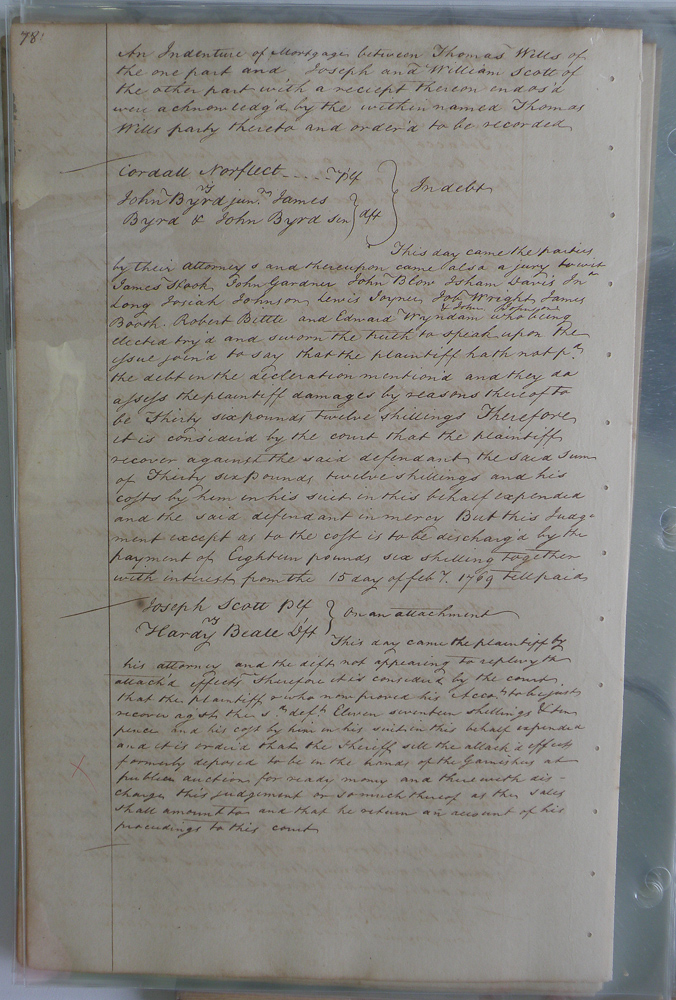 78.
An Indenture of Mortgage between Thomas Wells of
the one part and Joseph and William Scott of
the other part with a reciept thereon endos'd
were acknowledg'd by the within named Thomas
Wells party thereto and order'd to be recorded
Cordall Norflect .... plf
vs
John Byrd jun.r James
Byrd & John Byrd sen } dft
In debt
This day came the parties
by their attorney s and thereupon came also a jury to wit
James Hook John Gardner John Blow Isham Davis Jn.o
Long Josiah Johnson Lewis Joyner Job Wright James
& John Johnson
Booth Robert Bittle and Edward Wyndam who being
elected try'd and sworn the truth to speak upon the
issue join'd to say that the plaintiff hath not p.d
the debt in the decleration mention'd and they do
assess the plaintiff damages by reasons thereof to
be Thirty six pounds twelve shillings Therefore
it is consider'd by the court that the plaintiff
recover against the said defendant the said sum
of Thirty six Pounds twelve shillings and his
costs by him in his suit in this behalf expended
and the said defendant in mercy But this Judg-
ment except as to the cost is to be discharg'd by the
payment of Eighteen pounds six shilling together
with interest from the 15 day of feb.y 1769 till paid
Joseph Scott Plf
vs
Hardy Beale Dft
On an attachment
This day came the plaintiff by
his attorney and the deft not appearing to replevy th
attach'd effects Therefore it is consider'd by the court
that the plaintiff who now proved his Acco.t to be just
recover ag st the s.d def.t Eleven seventeen shillings & ten
pence and his cost by him in his suit in this behalf expended
and it is order'd that the Sheriff sell the attach'd effects
formerly deposed to be in the hands of the Garnishes at
publick auction for ready money and therewith dis-
charge this judgement or so much thereof as the sales
shall amount to and that he return an account of his
proceedings to this court